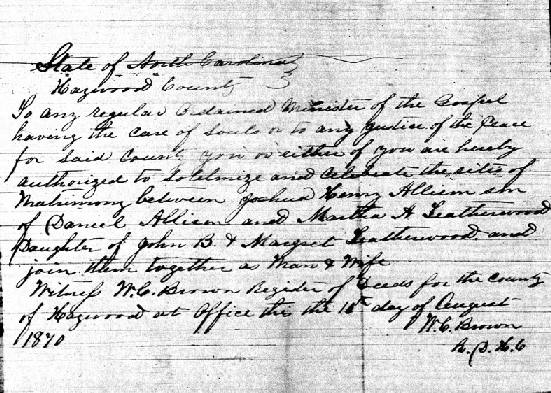 State of North Carolina
Haywood County
To any regular Ordained Minister of the Gospel
having the care of Souls or to any Justice of the Peace
for said County you or either of you are hereby
authorized to Solemize and Celebrate the rites of
Matrimony between Joshua Henry Allison son
of Daniel Allison and Martha A Leatherwood
Daughter of John B & Margret Leatherwood and
join them together as Man & Wife
Witness W. C. Brown Register of Deeds for the County
of Haywood at Office this the day of August
1870 W. C. Brown
R. D. H. C